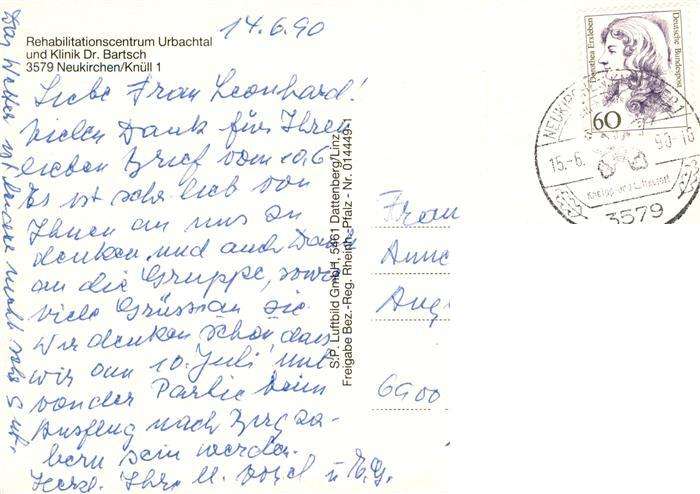 14.6.90
Rehabilitationscentrum Urbachtal
und Klinik Dr. Bartsch
3579 Neukirchen/Knüll 1
Liebe Frau Leonhard!
Vielen Dank für Ihren
lieben Brief vom 10.6
Es ist sehr lieb von
Ihnen an uns zu
denken, und auch Dank
an die Gruppe, sowie
viele Grüsse an sie
Wir denken schon, das
wir am 10. Juli mit
von der Partie beim
Ausflug nach Bergza-
bern sein werden.
Herzl. Ihre U. u. E.G.
Das Wetter ist hier nicht sehr gut.
S/P Luftbild GmbH, 5461 Dattenberg/Linz
Freigabe Bez.-Reg. Rheinh.-Pfalz - Nr. 014449-1
Dorothea Erxleben
Deutsche Bundespost
60
NEUKIRCHEN
15.-6. 90-18
3579
Frau
Anne
Aug
6900